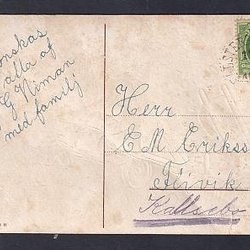 önskas
alla af
G Niman
med familj
Herr
E M Eriksson
Kallsebo